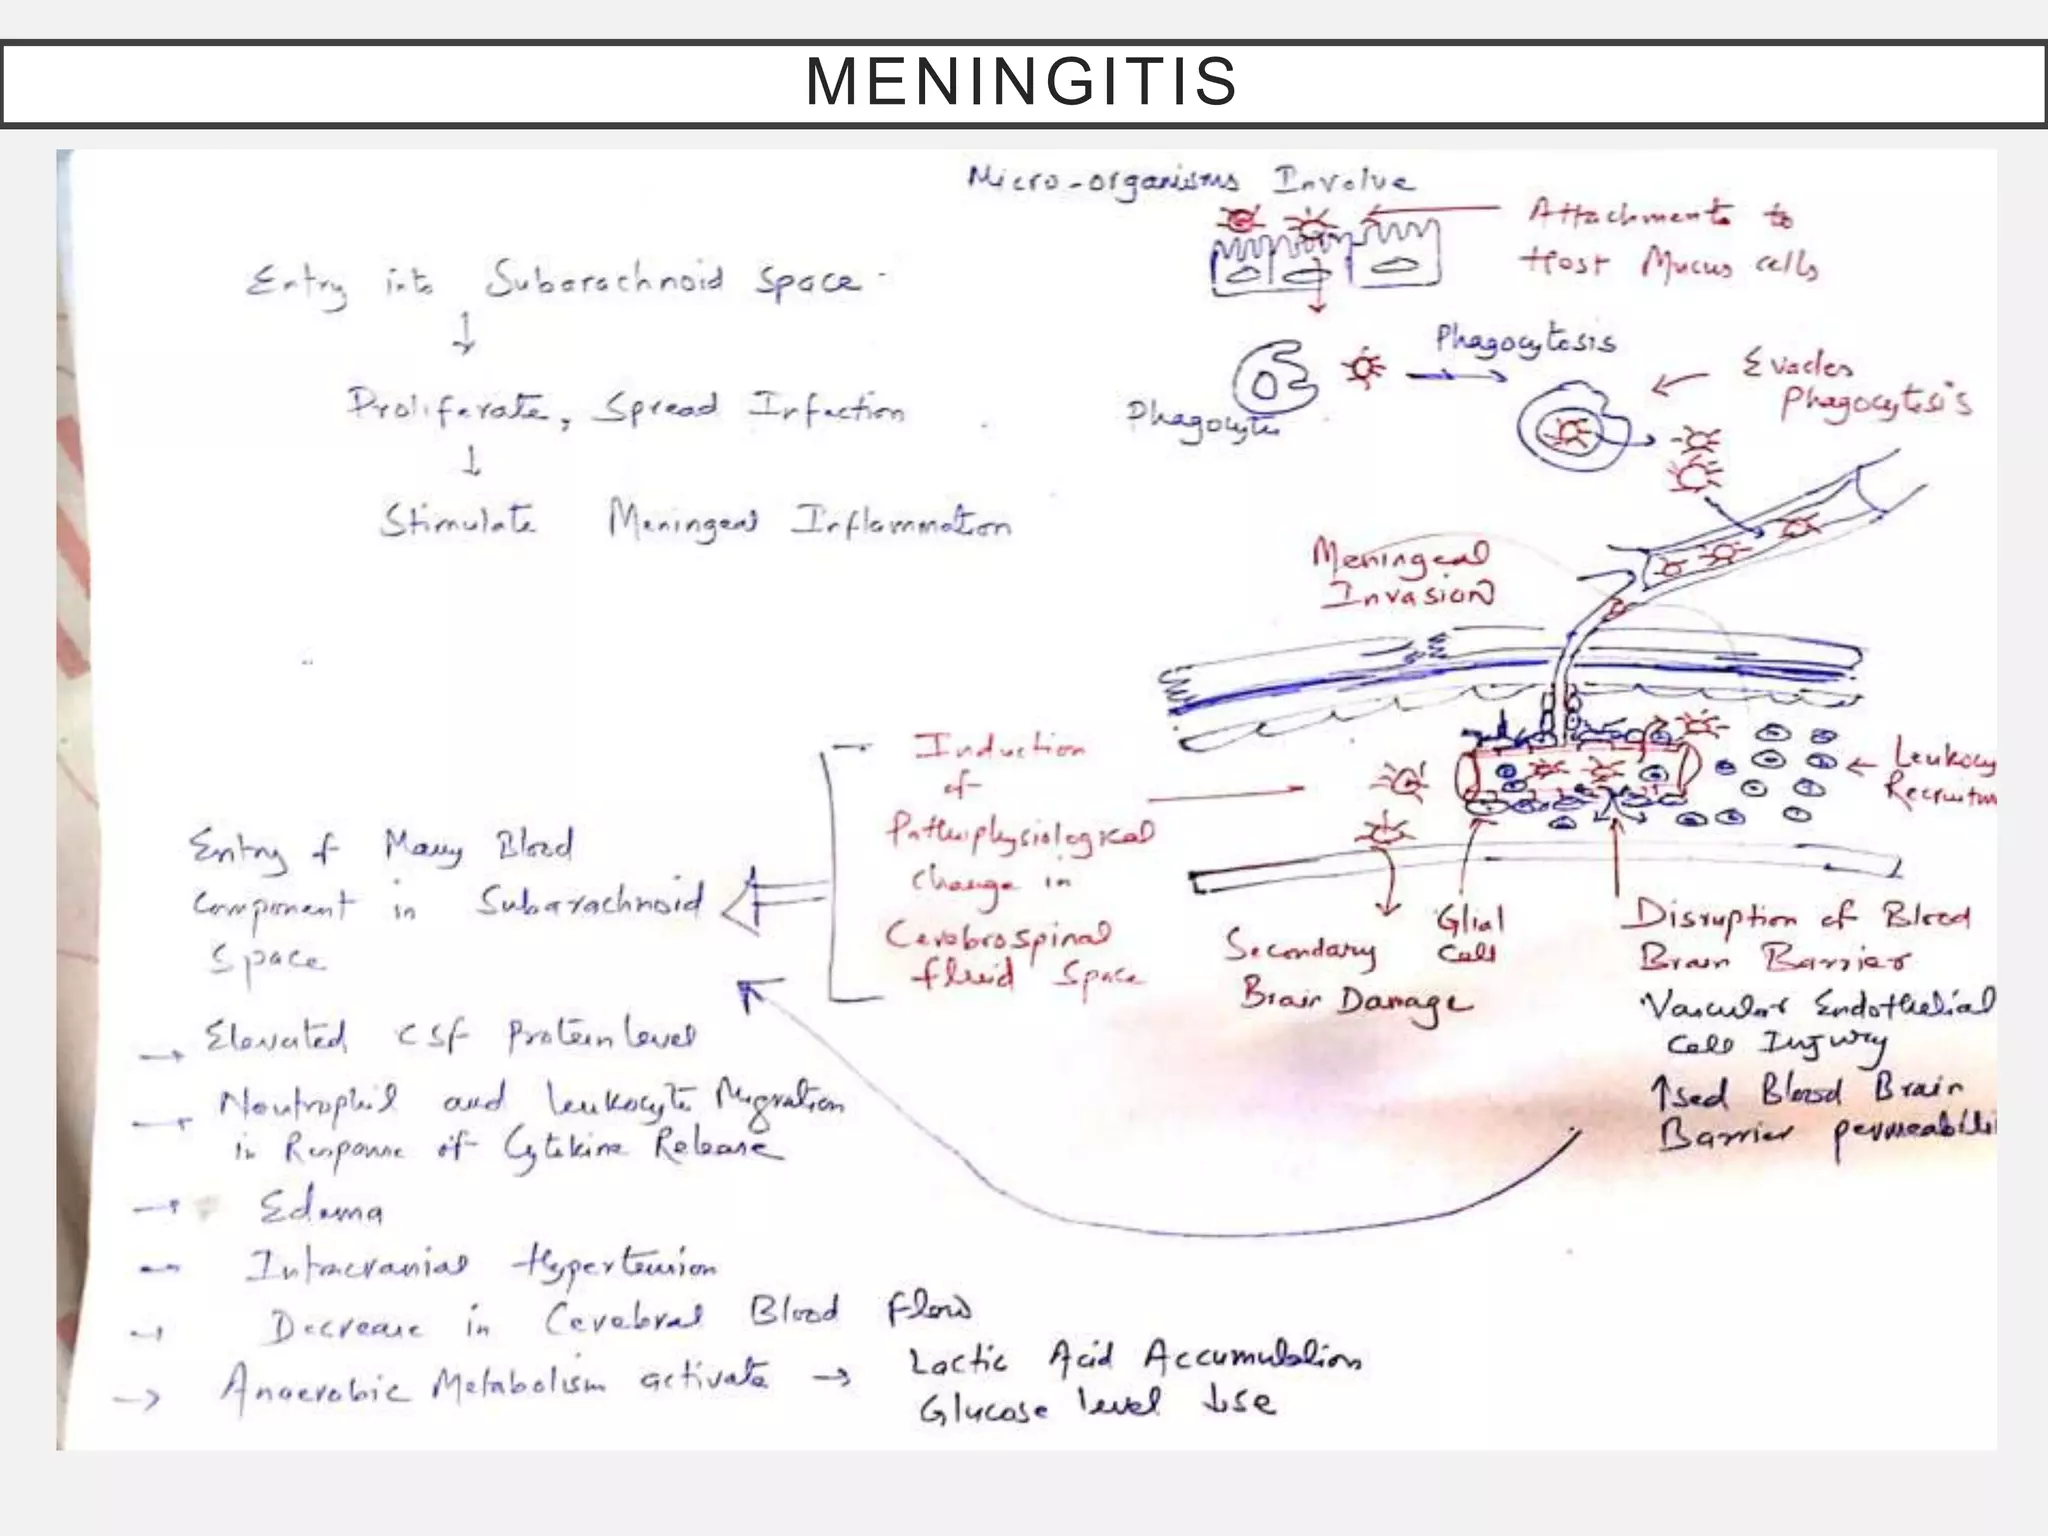 MENINGITIS
Micro-organisms Involve
Attachments to
Host Mucus cells
Entry into Subarachnoid space
↓
Proliferate, Spread Infection
↓
Stimulate Meningeal Inflammation
Phagocyte
Phagocytosis
Evades
Phagocytosis
Meningeal
Invasion
Leukocy
Recruitm
Induction
of
Pathophysiological
Change in
Cerebrospinal
fluid Space
Secondary
Brain Damage
Glial
Cell
Disruption of Blood
Brain Barrier
Vascular Endothelial
Cell Injury
↑sed Blood Brain
Barrier permeabili
Entry of Many Blood
Component in Subarachnoid
Space
→ Elevated CSF Protein level
→ Neutrophil and Leukocyte Migration
in Response of Cytokine Release
→ Edema
→ Intracranial Hypertension
→ Decrease in Cerebral Blood Flow
→ Anaerobic Metabolism activate → Lactic Acid Accumulation
Glucose level ↓se